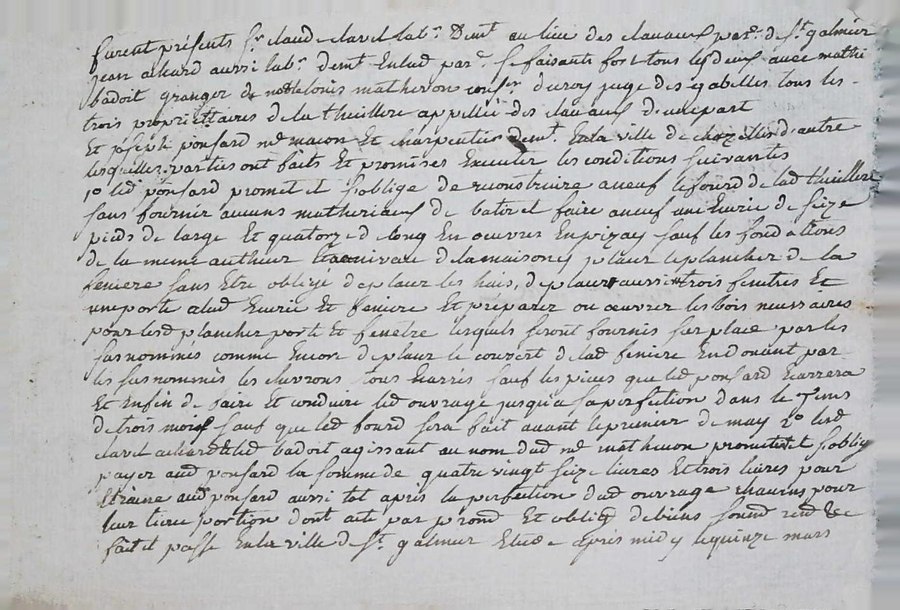 furent présents sr claude clavel labr demt au lieu des clavaux parse de st galmier
jean achard aussi labr demt aulud parse se faisants fort tous les deux avec mathi
badoit granger de noble louis matheron conser du roy juge des gabelles tous les
trois proprietaires de la thuillere appellée des clavaux d'une part
Et joseph ponsard me macon Et charpentier demt En la ville de chazelles d'autre
lesquelles parties ont faits Et promises Executer les conditions suivantes
1o led ponsard promet et s'oblige de reconstruire a neuf le fourd de lad thuillere
sans fournir aucuns matheriaux de batir et faire a neuf une Ecurie de seize
pieds de large Et quatorze de long En oeuvres En pizay sauf les fondations
de la meme autheur niveau de la maison placer le plancher de la
feniere sans Etre obligé de placer les huis, de placer aussi trois fenetres Et
une porte a lad Ecurie Et feniere Et préparer ou oeuvrer les bois necessaires
pour lesd plancher porte Et fenetre lesquels seront fournis sur place par les
susnommés comme Encor de placer le couvert de lad feniere En donant par
les susnommés les chevrons tous Ecarrés sauf les pieces que led ponsard Ecarrera
Et Enfin de faire Et conduire led ouvrage jusqu'a sa perfection dans le tems
de trois mois sauf que led fourd sera fait avant le premier de may 2o lesd
clavel achard Et led badoit agissant au nom dud me matheron promettent s'oblig
payer aud ponsard la somme de quatre vingt seize livres Et trois livres pour
Etraine aud ponsard aussi tot après la perfection dud ouvrage chacuns pour
leur tierce portion dont acte par prom Et oblig de biens soumd rend &c
fait et passé En la ville de st galmier Etude après midy le quinze mars